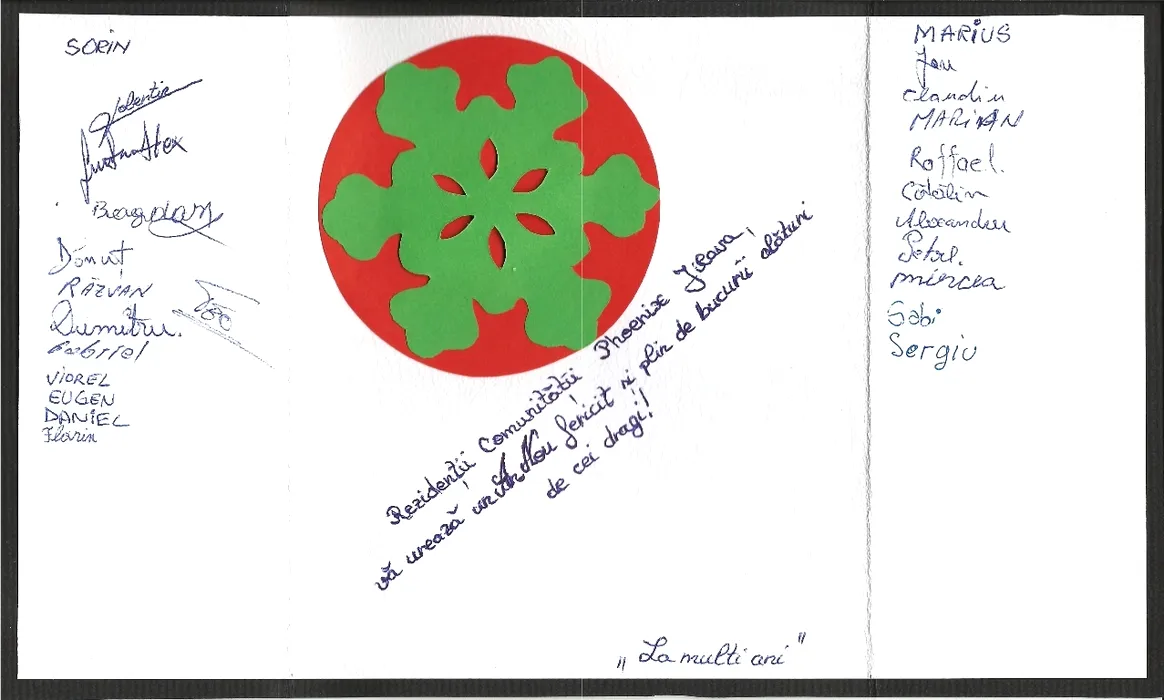 SORIN
Valentin
Alex
Bogdan
Dănuț
RĂZVAN
Dumitru.
Gabriel
VIOREL
EUGEN
DANIEL
Florin
Rezidenții Comunității Phoenixe Jilava,
vă urează un An Nou fericit și plin de bucurii alături
de cei dragi!
„La multi ani”
MARIUS
Jan
Claudiu
MARIAN
Raffael.
Cătălin
Alexandru
Petre.
Mircea
Gabi
Sergiu